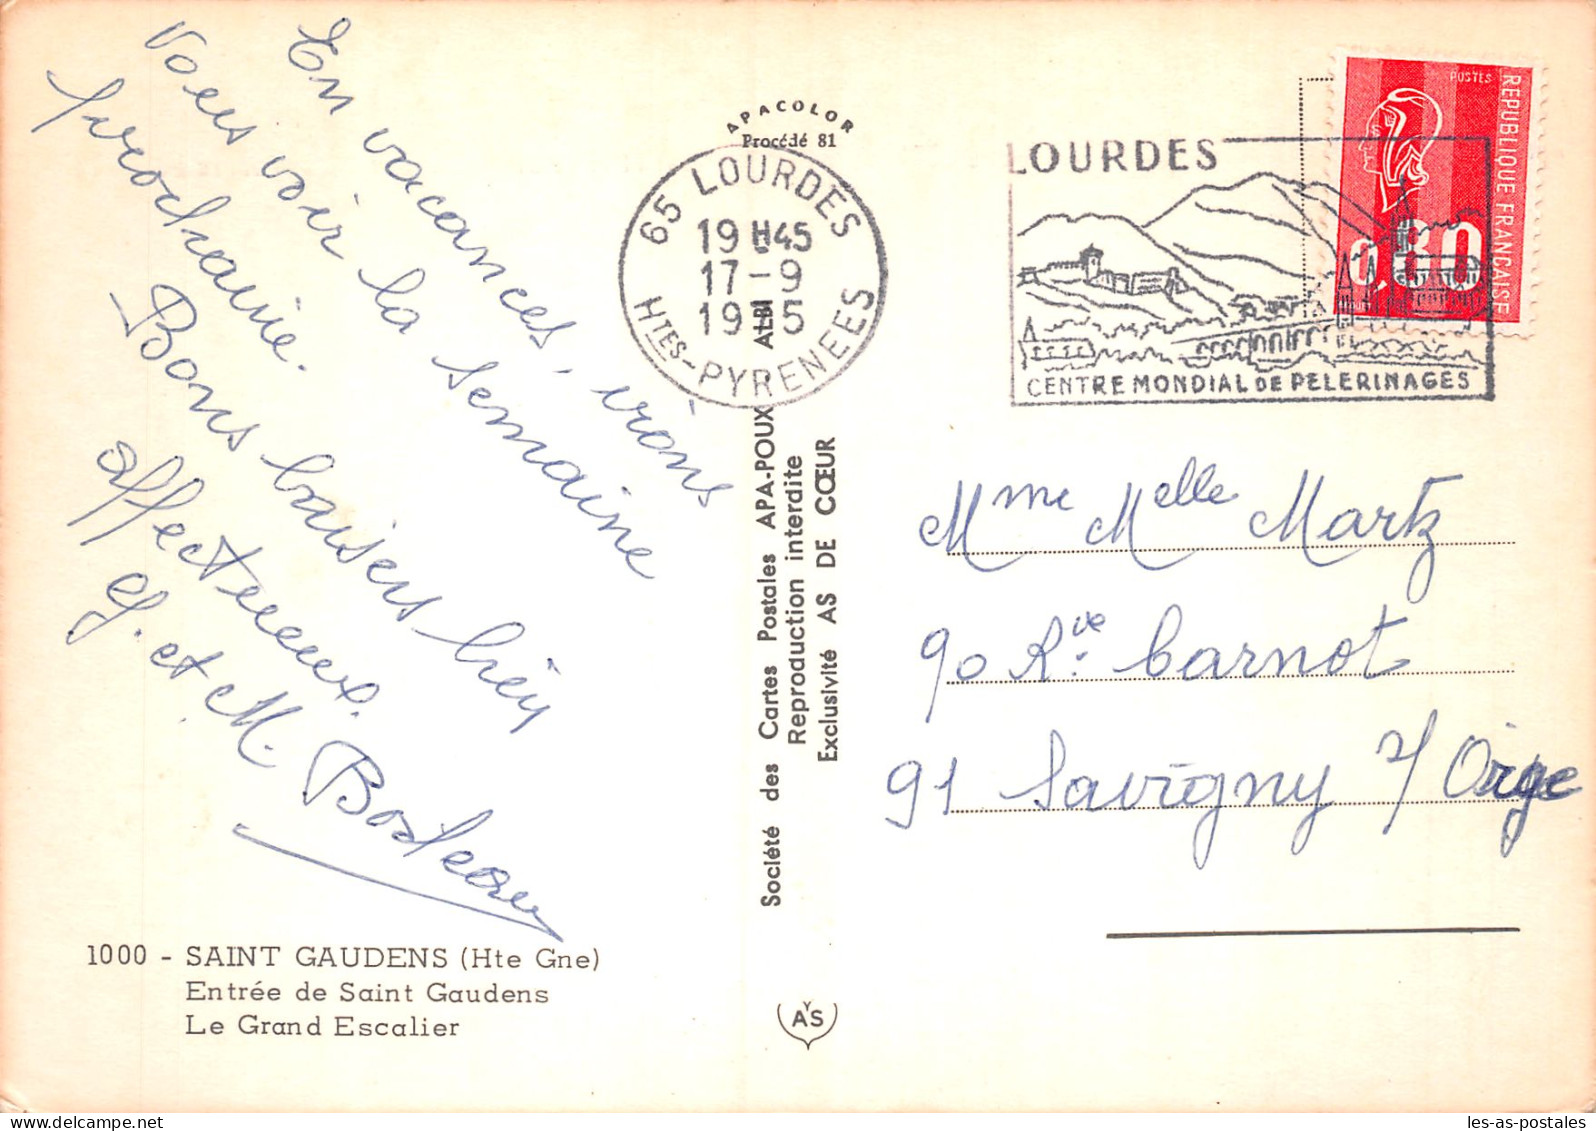 En vacances, irons
vous voir la semaine
prochaine.
Bons baisers bien
affectueux.
et M.
1000 - SAINT GAUDENS (Hte Gne)
Entrée de Saint Gaudens
Le Grand Escalier
APACOLOR
Procédé 81
Société des Cartes Postales APA-POUX ALBI
Reproduction interdite
Exclusivité AS DE CŒUR
AYS
65 LOURDES
19H45
17-9
1975
HTES-PYRENEES
LOURDES
CENTRE MONDIAL DE PELERINAGES
POSTES
REPUBLIQUE FRANÇAISE
0,80
Mme Melle Martz
90 Rve. Carnot
91 Savigny s/ Orge
les-as-postales.com